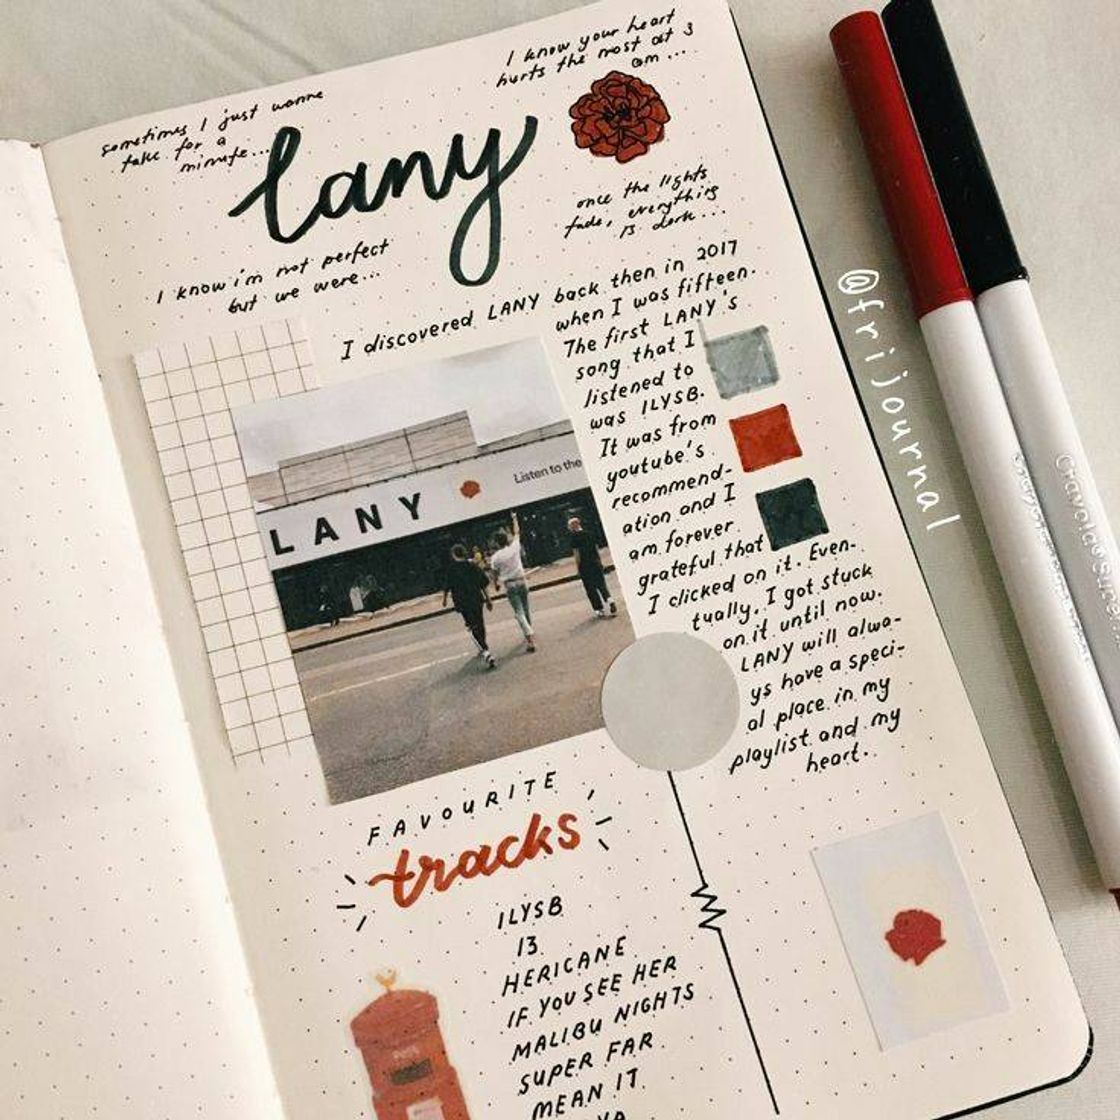 I know your heart
hurts the most at 3
am ...
sometimes I just wanna
take for a
minute...
lany
once the lights
fade, everything
is dark...
I know i'm not perfect
but we were...
I discovered LANY back then in 2017
when I was fifteen.
The first LANY's
song that I
listened to
was ILYSB.
It was from
youtube's
recommend-
ation and I
am forever
grateful that
I clicked on it. Even-
tually, I got stuck
on it until now.
LANY will alwa-
ys have a speci-
al place in my
playlist and my
heart.
Listen to the
LANY
FAVOURITE
tracks
ILYSB
13
HERICANE
IF YOU SEE HER
MALIBU NIGHTS
SUPER FAR
MEAN IT
@frijournal
Crayola